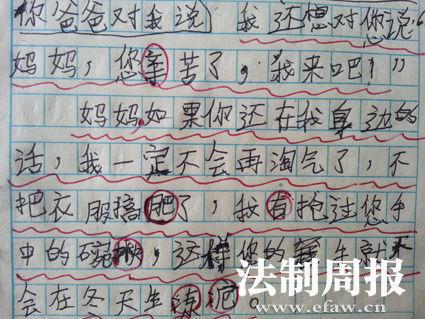 你爸爸对我说 我还想对您说:“
妈妈,您辛苦了,我来吧!”
妈妈,如果你还在我身边的
话,我一定不会再淘气了,不
把衣服搞肥了,我 抢过您手
中的碗 ,这样你的 生就不
会在冬天生冻 。
法制周报
www.efaw.cn